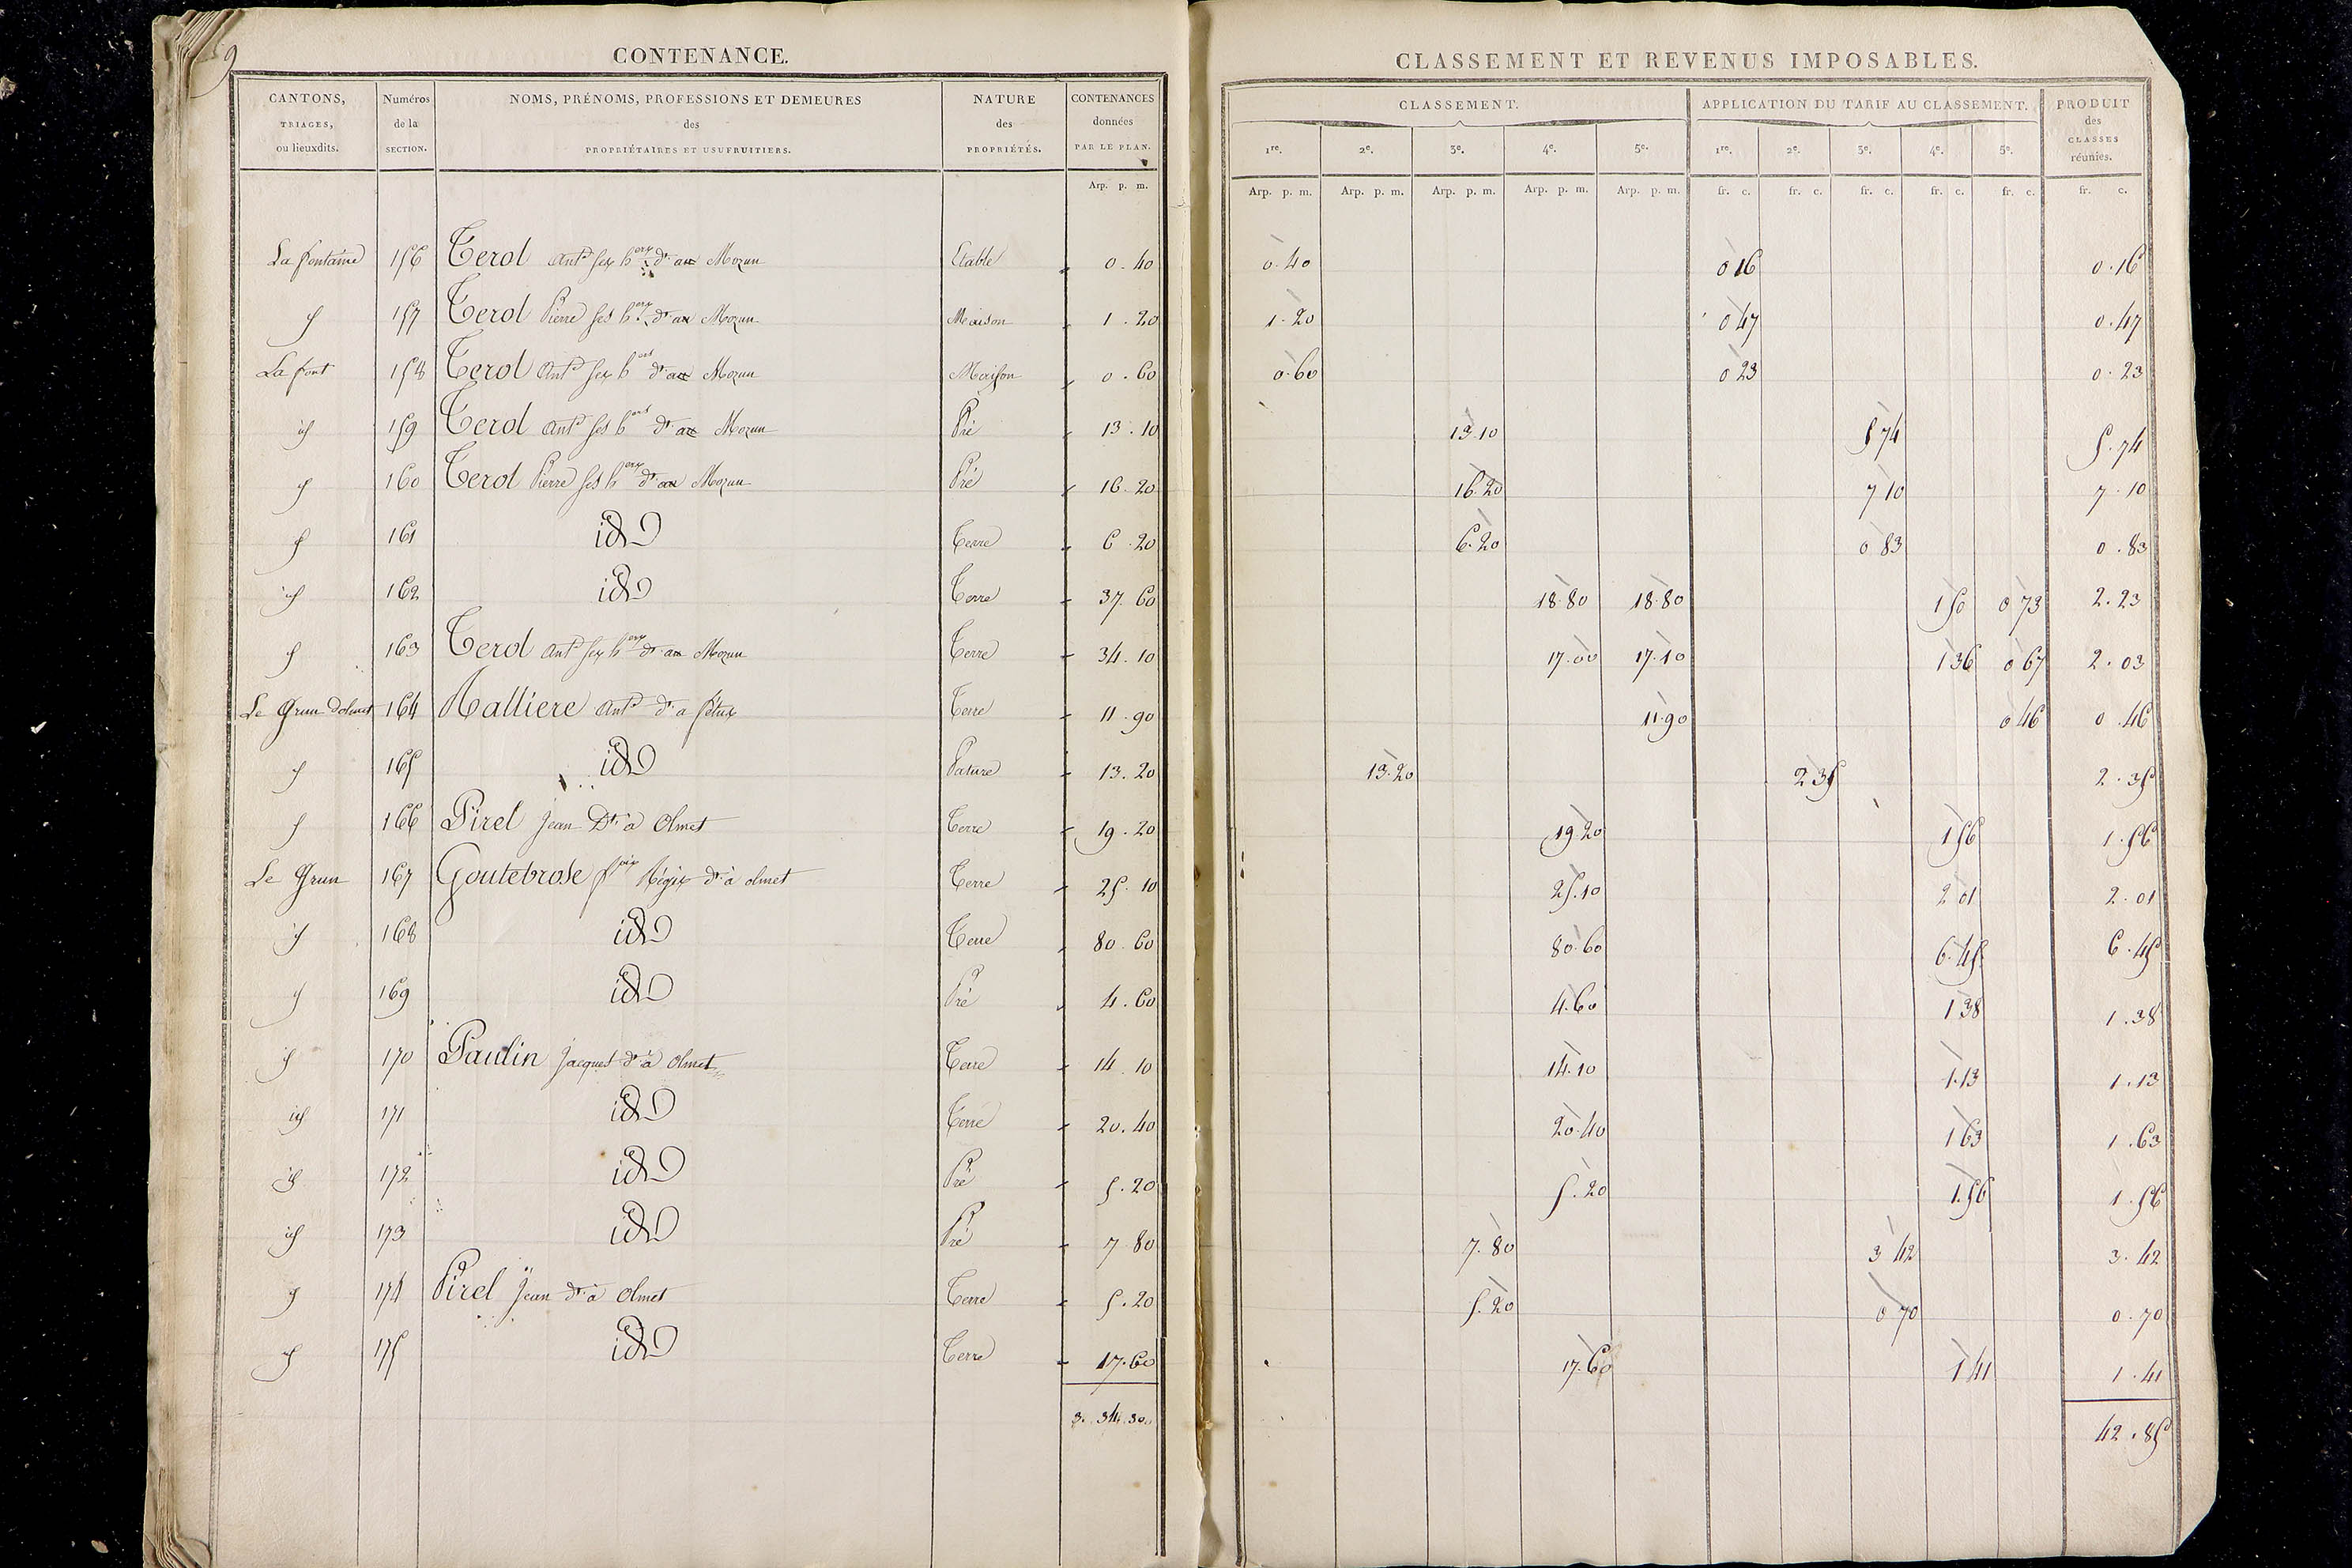 9
CONTENANCE.
CANTONS, TRIAGES, ou lieuxdits. Numéros de la SECTION. NOMS, PRÉNOMS, PROFESSIONS ET DEMEURES des PROPRIÉTAIRES ET USUFRUITIERS. NATURE des PROPRIÉTÉS. CONTENANCES données PAR LE PLAN.
Arp. p. m.
CLASSEMENT ET REVENUS IMPOSABLES.
CLASSEMENT. APPLICATION DU TARIF AU CLASSEMENT. PRODUIT des CLASSES réunies.
1re. 2e. 3e. 4e. 5e. 1re. 2e. 3e. 4e. 5e.
Arp. p. m. Arp. p. m. Arp. p. m. Arp. p. m. Arp. p. m. fr. c. fr. c. fr. c. fr. c. fr. c. fr. c.
La fontaine 156 Terol Ant. ses h.ers dt. au Mozun Etable 0.40 0.40 0 16 0.16
id 157 Terol Pierre ses h.ers dt. au Mozun Maison 1.20 1.20 0 47 0.47
La font 158 Terol Ant. ses h.ers dt. au Mozun Maison 0.60 0.60 0 23 0.23
id 159 Terol Ant. ses h.ers dt. au Mozun Pré 13.10 13.10 5 74 5.74
id 160 Terol Pierre ses h.ers dt. au Mozun Pré 16.20 16.20 7 10 7.10
id 161 id Terre 6.20 6.20 0 83 0.83
id 162 id Terre 37.60 18.80 18.80 1 50 0 73 2.23
id 163 Terol Ant. ses h.ers dt. au Mozun Terre 34.10 17.00 17.10 1 36 0 67 2.03
Le Grun dolmet 164 Malliere Ant. dt. a Terre 11.90 11.90 0 46 0.46
id 165 id Pature 13.20 13.20 2 35 2.35
id 166 Pirel Jean Dt. a Olmet Terre 19.20 19.20 1 56 1.56
Le Grun 167 Goutebrose fois Régis dt. à olmet Terre 25.10 25.10 2 01 2.01
id 168 id Terre 80.60 80.60 6.45 6.45
id 169 id Pré 4.60 4.60 1 38 1.38
id 170 Paulin Jacques dt. à Olmet Terre 14.10 14.10 1.13 1.13
id 171 id Terre 20.40 20.40 1 63 1.63
id 172 id Pré 5.20 5.20 1.56 1.56
id 173 id Pré 7 80 7.80 3 42 3.42
id 174 Pirel Jean dt. à Olmet Terre 5.20 5.20 0 70 0.70
id 175 id Terre 17.60 17.60 1 41 1.41
3.34.30 42.85